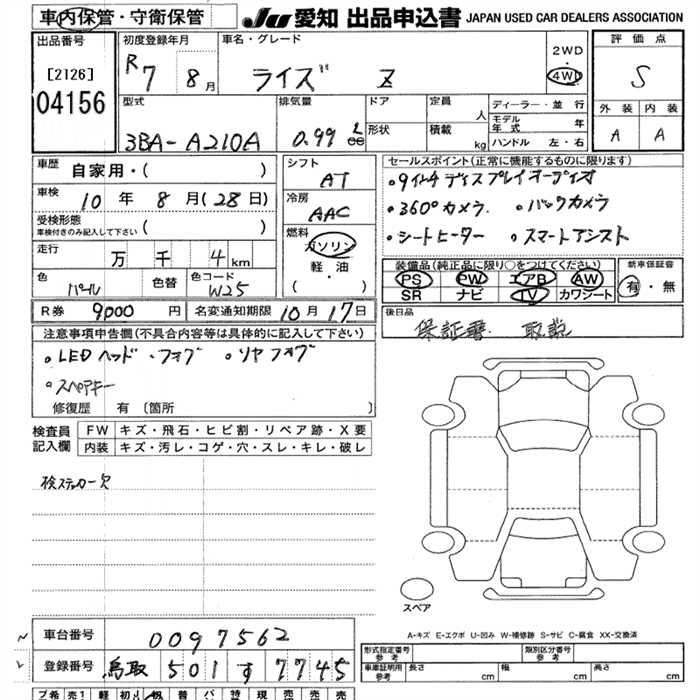 車内保管・守衛保管
JU 愛知 出品申込書 JAPAN USED CAR DEALERS ASSOCIATION
出品番号 初度登録年月 車名・グレード 2WD 評価点
[2126] R7 8月 ライズ Z 4WD S
04156
型式 排気量 ドア 定員 人 ディーラー・並行 外装 内装
3BA-A210A 0.99 L cc 形状 積載 kg モデル年式 年 A A
ハンドル 左・右
車歴 自家用・( ) シフト AT セールスポイント(正常に機能するものに限ります)
車検 10年 8月(28日) 冷房 AAC ・9インチディスプレイオーディオ
受検形態 ( ) ・360°カメラ ・バックカメラ
車検付きのみ記入して下さい 燃料 ガソリン ・シートヒーター ・スマートアシスト
走行 万 千 4km 軽・油
色 パール 色替 色コード W25 ( )
装備品(純正品に限り○をつけてください) 新車保証書
PS PW エアB AW 有・無
SR ナビ TV カワシート
R券 9000円 名変通知期限 10月17日 後日品
保証書 取説
注意事項申告欄(不具合内容等は具体的に記入して下さい)
・LEDヘッド・フォグ ・リヤフォグ
・スペアキー
修復歴 有 〔箇所 〕
検査員記入欄 FW キズ・飛石・ヒビ割・リペア跡・X要
内装 キズ・汚レ・コゲ・穴・スレ・キレ・破レ
検ステッカー欠
スペア
A-キズ E-エクボ U-凹み W-補修跡 S-サビ C-腐食 XX-交換済
車台番号 0097562 形式指定番号 参考 類別区分番号 参考
登録番号 鳥取 501 す 7745 車庫証明用 参考 長さ cm 幅 cm 高さ cm